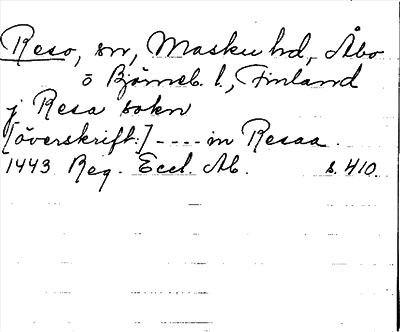 Reso, sn, Masku hd, Åbo
o Björneb. l., Finland
j Resa sokn
[överskrift:] ---- in Resaa.
1443 Reg. Eccl. Ab. s. 410.